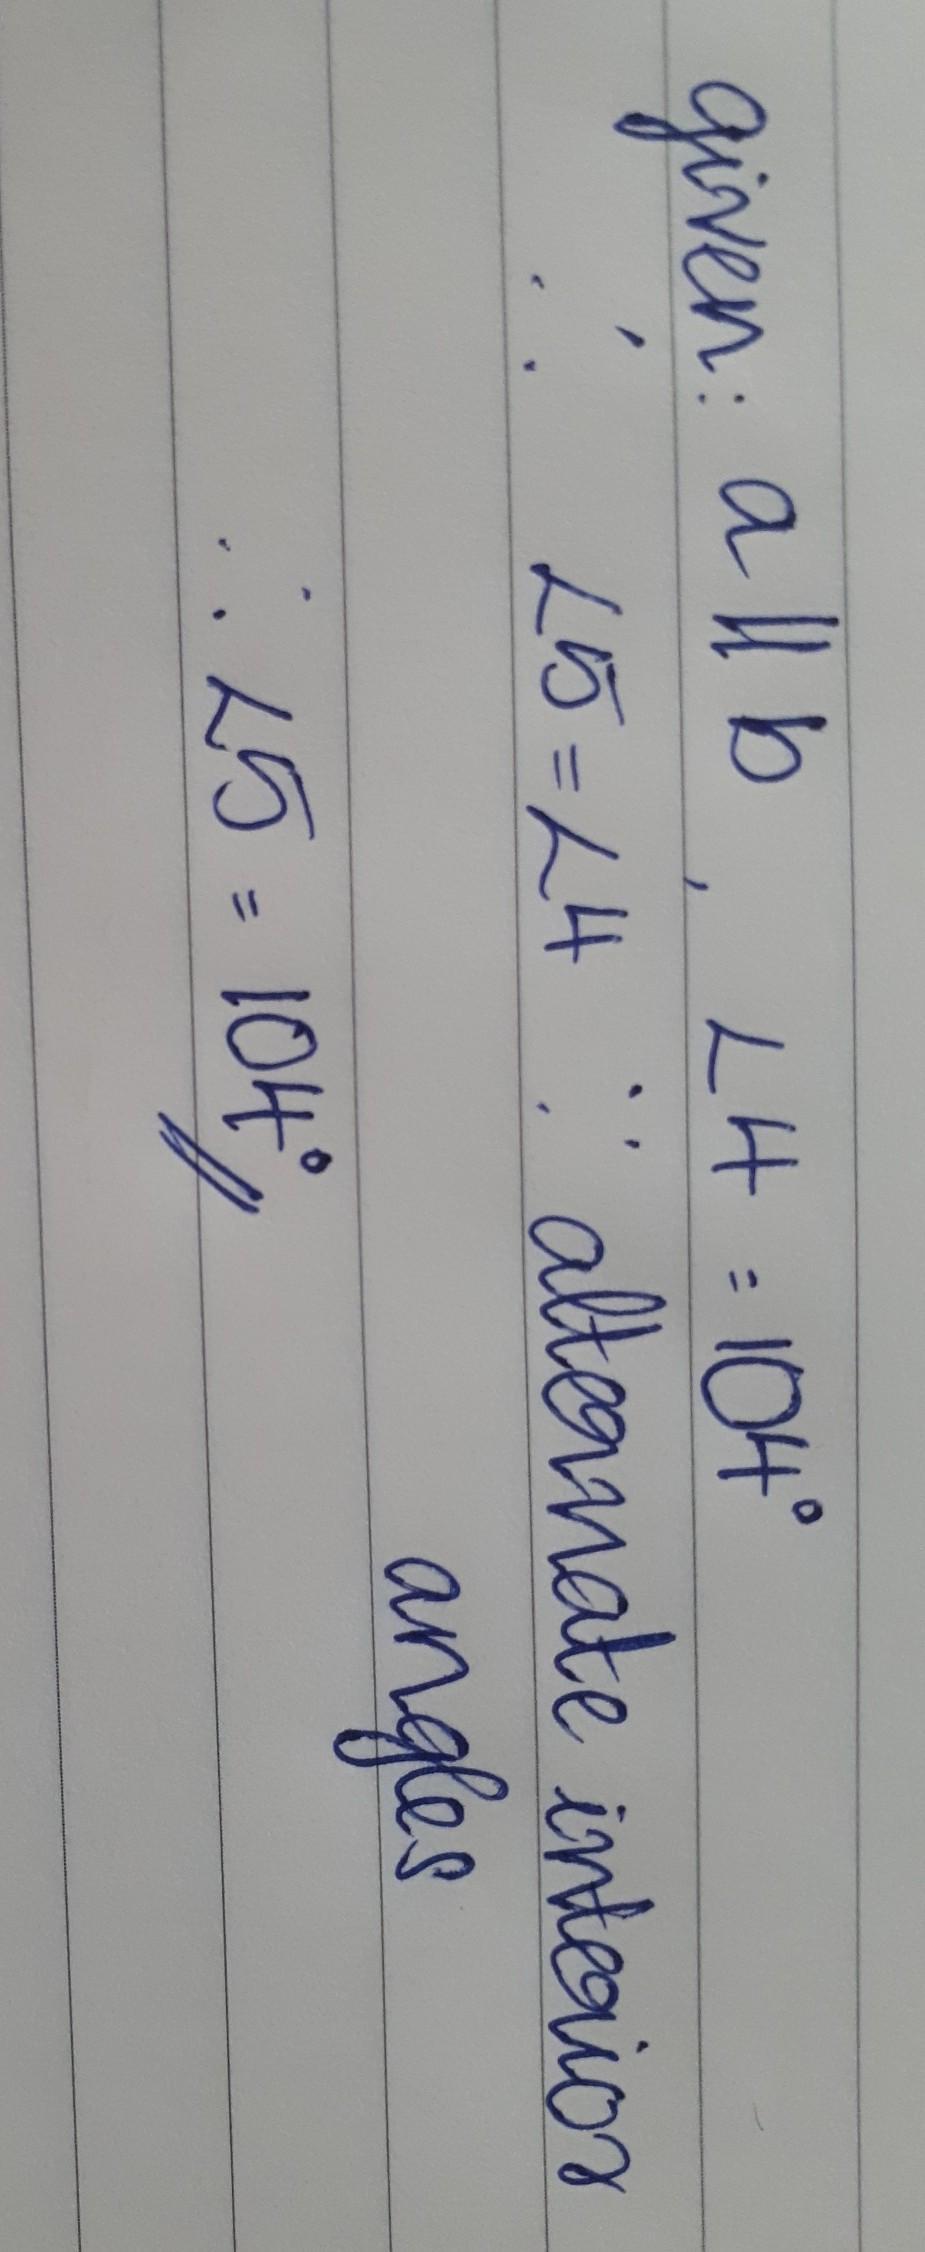 given: a || b , ∠4 = 104°
∴ ∠5 = ∠4 ∵ alternate interior
angles
∴ ∠5 = 104°